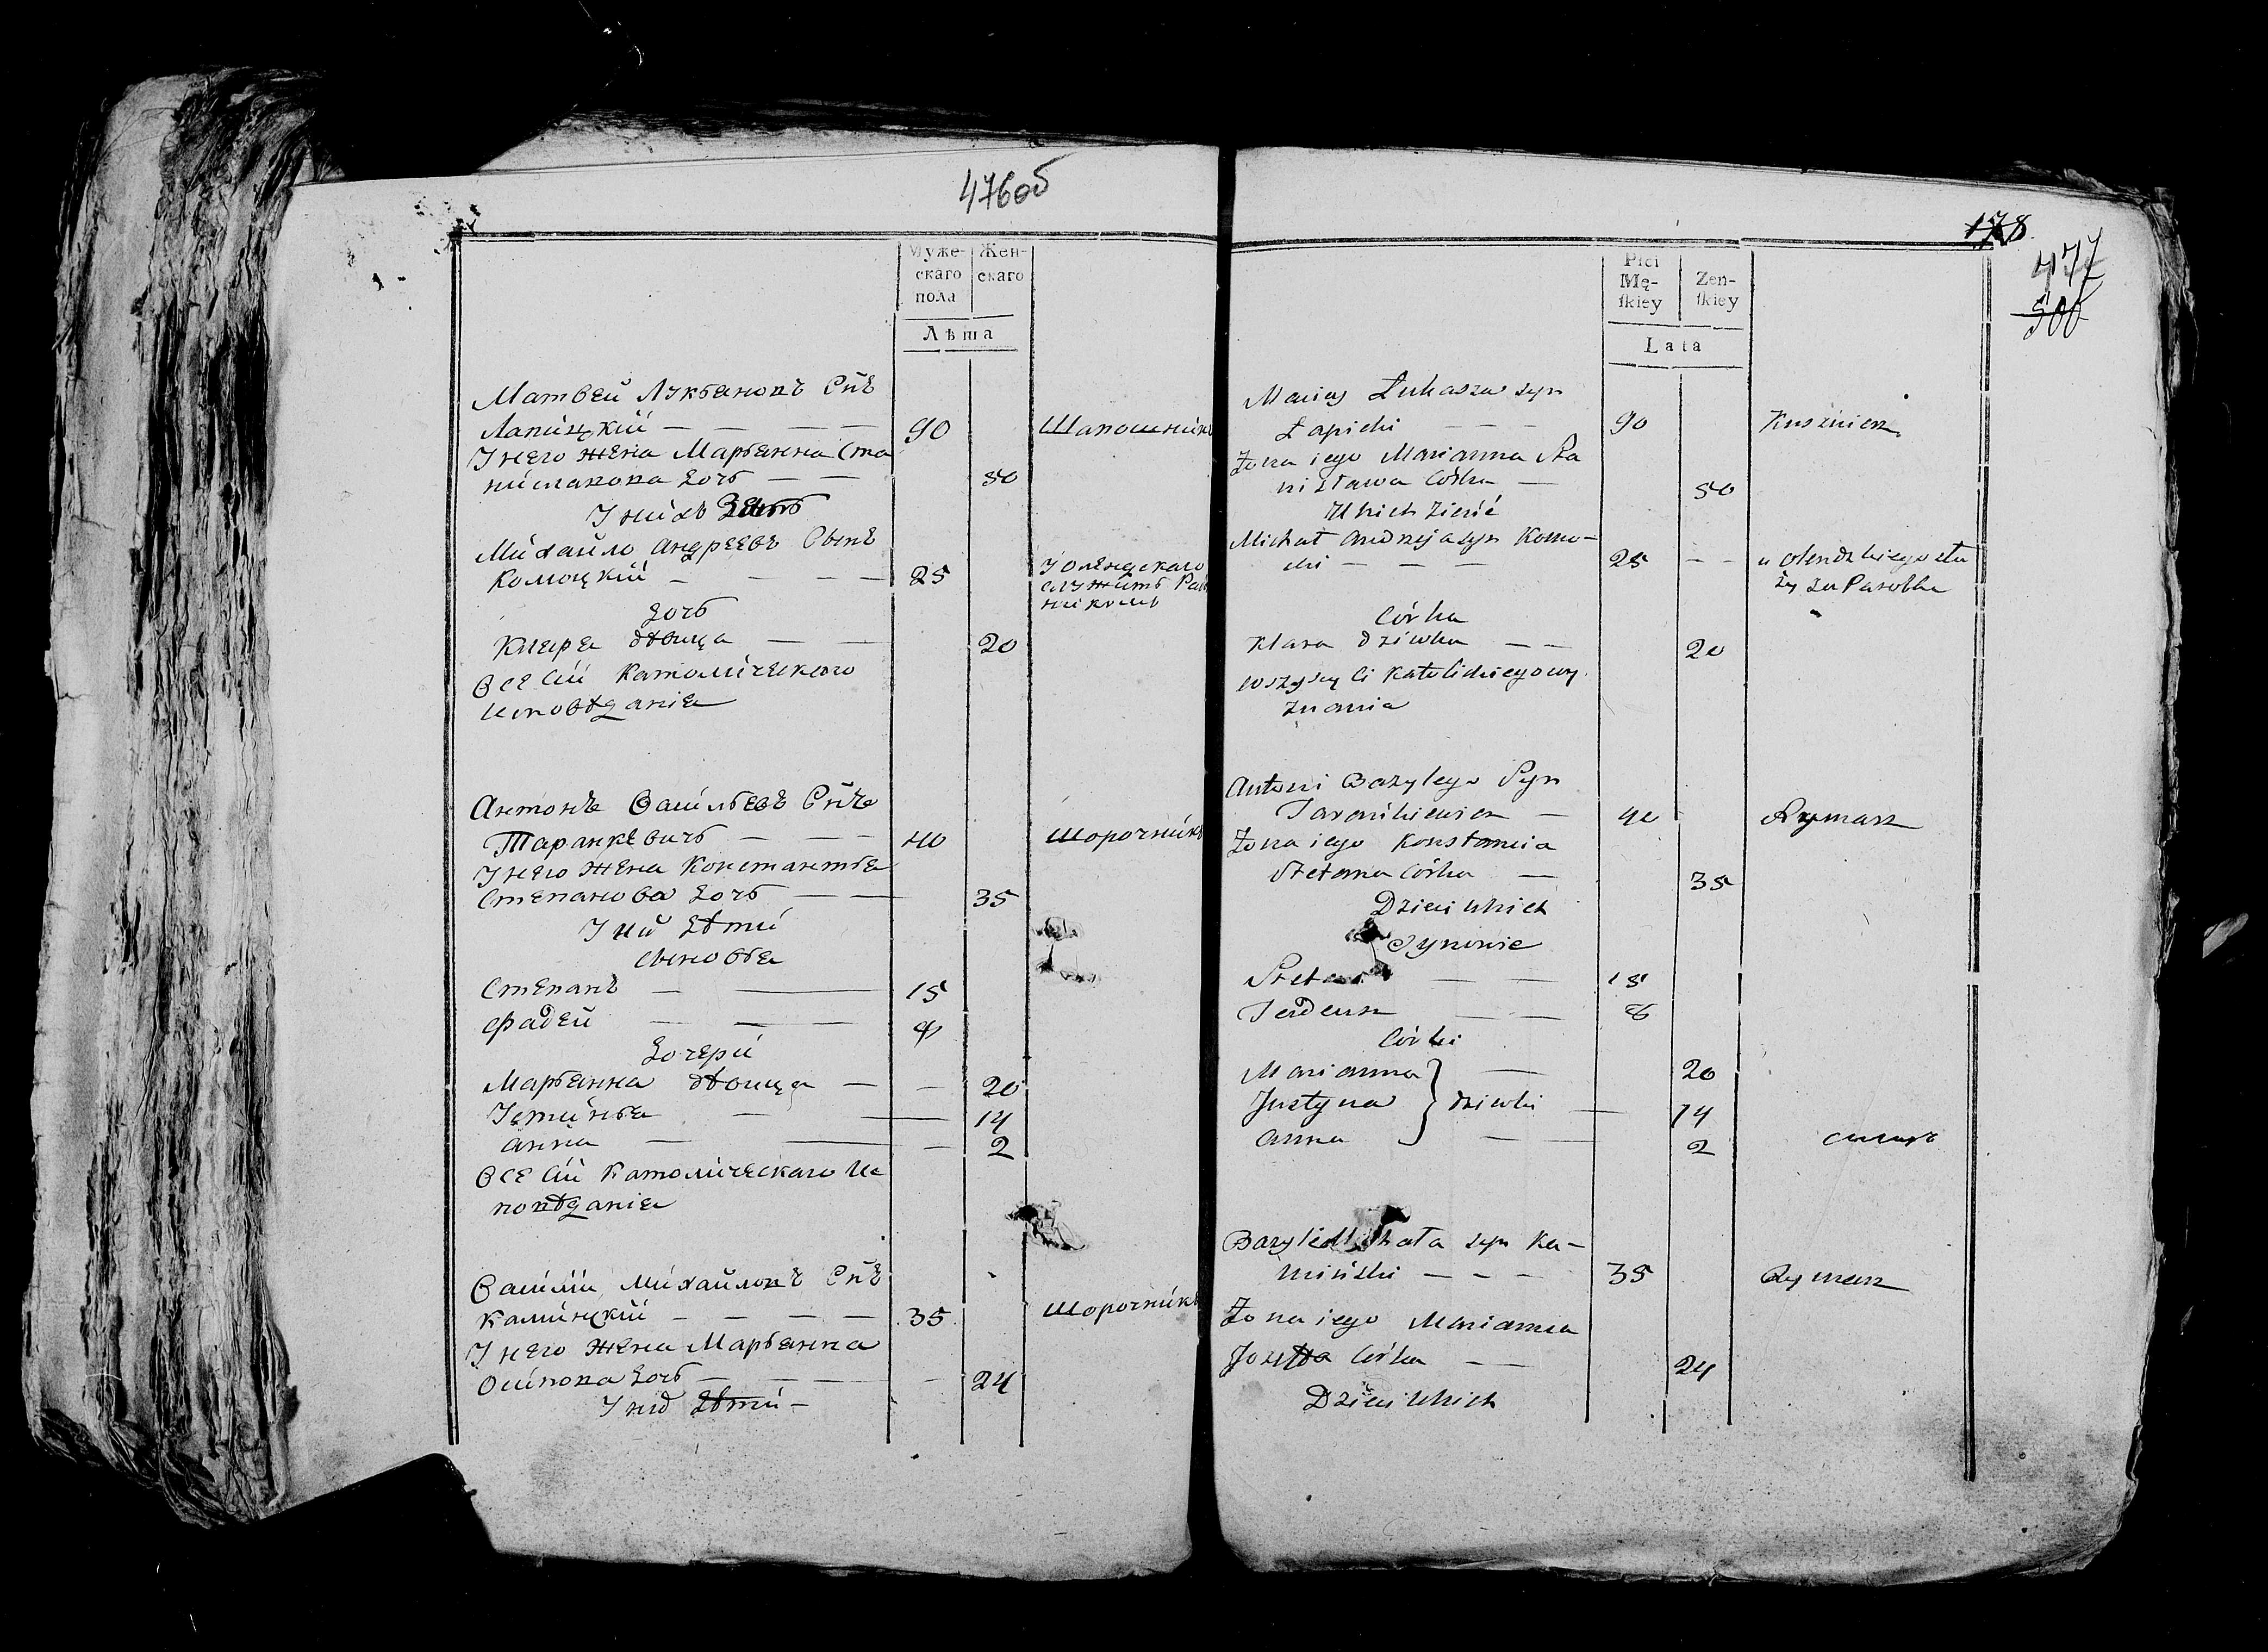 476об
Муже-
скаго
пола
Жен-
скаго
Лѣта
Матвей Лукьяновъ Сн̃ъ
Лапи́нцкий — — — — 90 Шапошникъ
У него жена Марьянна Ста
ниславова дочь — — 50
У нихъ Зять
Михайло Андреевъ Сынъ
Комоцкий — — — — 25 У Оленцскаго
служитъ
дочь
Клара дѣвица — — 20
Все сии Католическаго
исповѣданія
Антонъ Васильевъ Сн̃ъ
Таранкевичъ — — — 40 Шорочникъ
У него жена Константья
Степанова дочь — — 35
У них дѣти
сыновья
Степанъ — — 15
Фадей — — — 8
дочери
Марьянна дѣвица — — 20
Устинья — — 14
Анна — — — 2
Все сии Католическаго Ис
повѣданія
Василій Михайловъ Сн̃ъ
Каминцкий — — — — 35 Шорочникъ
У него жена Марьянна
Осипова дочь — — — 24
У них дѣти —
178
477
500
Płci
Mę-
ſkiey
Zeń-
ſkiey
Lata
Maciey Łukasza syn
Łapicki — — — 90 Kuśnierz
Żona iego Marianna Sta
nisława Córka — 50
U nich Zięć
Michał Andrzeja syn Komo-
cki — — — 25 — — u Olendzkiego słu
ży za Parobka
Córka
Klara dziwka — — 20
wszyscy ci Katolickiego wy
znania
Antoni Bazylego Syn
Tarankiewicz — 40 Rymarz
Żona iego Konstancia
Stefana Córka — 35
Dzieci u nich
Synowie
Stefan — — 15
Tadeusz — — 8
Córki
Marianna } — 20
Justyna } dziwki — 14
Anna } — — 2
Bazyli Michała syn Ka-
miński — — — 35 Rymarz
Żona iego Marianna
Józefa Córka — — 24
Dzieci u nich